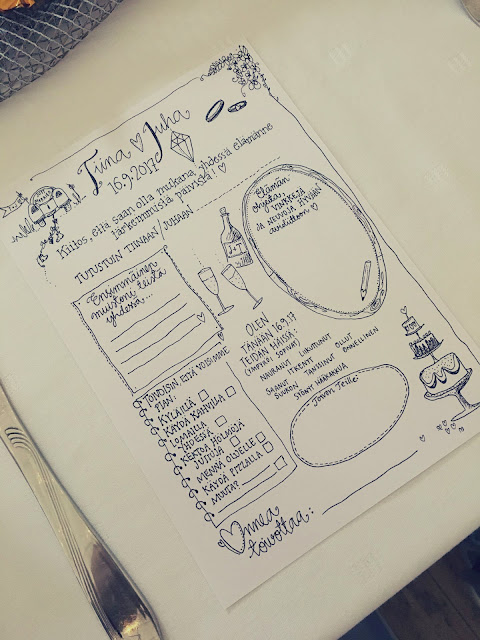 Tiina ♡ Juha
16.9.2017
Kiitos, että saan olla mukana yhdessä elämänne
tärkeimmistä päivistä! ♡
TUTUSTUIN TIINAAN/JUHAAN
Ensimmäinen
muistoni teistä
yhdessä...
TOIVOISIN ETTÄ VOISIMME
PIAN:
KYLÄILLÄ
KÄYDÄ KAHVILLA
LOMAILLA
YHDESSÄ
KERTOA HÖLMÖJÄ
JUTTUJA
MENNÄ OLUELLE
KÄYDÄ PIZZALLA
MUUTA?
J+T
Elämän
ohjeita,
VINKKEJÄ
JA NEUVOJA
avioliittoon ♡
OLEN
TÄNÄÄN 16.9.17
TEIDÄN HÄISSÄ:
(YMPYRÖI SOPIVAT)
NAURANUT LIIKUTTUNUT OLLUT
SAANUT ITKENYT ONNELLINEN
SUUDON TANSSINUT
SYÖNYT HÄÄKAKKUA
Toivon Teille:
Onnea
toivottaa: